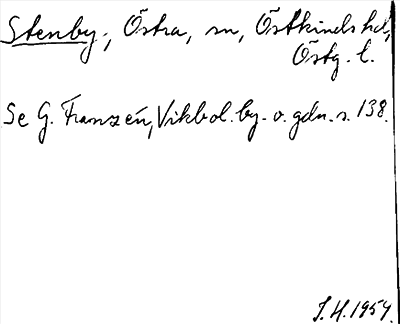 Stenby, Östra, sn, Östkinds hd,
Östg. l.
Se G. Franzén, Vikbol. by- o. gdn. s. 138.
J. H. 1954.